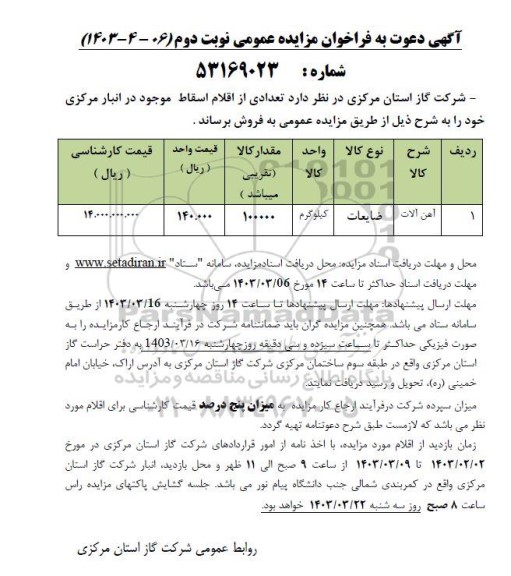 آگهی دعوت به فراخوان مزایده عمومی نوبت دوم (۰۶ - ۴-۱۴۰۳)
شماره : ۵۳۱۶۹۰۲۳
- شرکت گاز استان مرکزی در نظر دارد تعدادی از اقلام اسقاط موجود در انبار مرکزی
خود را به شرح ذیل از طریق مزایده عمومی به فروش برساند .
ردیف شرح کالا نوع کالا واحد کالا مقدارکالا (تقریبی میباشد ) قیمت واحد ( ریال ) قیمت کارشناسی ( ریال )
۱ آهن آلات ضایعات کیلوگرم ۱۰۰۰۰۰ ۱۴۰.۰۰۰ ۱۴.۰۰۰.۰۰۰.۰۰۰
محل و مهلت دریافت اسناد مزایده: محل دریافت اسنادمزایده، سامانه "ستاد" www.setadiran.ir و
مهلت دریافت اسناد حداکثر تا ساعت ۱۴ مورخ ۱۴۰۳/۰۳/06 می‌باشد.
مهلت ارسال پیشنهادها: مهلت ارسال پیشنهادها تا ساعت ۱۴ روز چهارشنبه ۱۴۰۳/۰۳/16 از طریق
سامانه ستاد می باشد. همچنین مزایده گران باید ضمانتنامه شرکت در فرآیند ارجاع کارمزایده را به
صورت فیزیکی حداکثر تا ساعت سیزده و سی دقیقه روزچهارشنبه 1403/۰۳/۱۶ به دفتر حراست گاز
استان مرکزی واقع در طبقه سوم ساختمان مرکزی شرکت گاز استان مرکزی به آدرس اراک، خیابان امام
خمینی (ره)، تحویل و رسید دریافت نمایند.
میزان سپرده شرکت درفرآیند ارجاع کار مزایده به میزان پنج درصد قیمت کارشناسی برای اقلام مورد
نظر می باشد که لازمست طبق شرح دعوتنامه تهیه گردد.
زمان بازدید از اقلام مورد مزایده، با اخذ نامه از امور قراردادهای شرکت گاز استان مرکزی در مورخ
۱۴۰۳/۰۲/۰۲ تا ۱۴۰۳/۰۳/۰۹ از ساعت ۹ صبح الی ۱۱ ظهر و محل بازدید، انبار شرکت گاز استان
مرکزی واقع در کمربندی شمالی جنب دانشگاه پیام نور می باشد. جلسه گشایش پاکتهای مزایده راس
ساعت ۸ صبح روز سه شنبه ۱۴۰۳/۰۳/۲۲ خواهد بود.
روابط عمومی شرکت گاز استان مرکزی